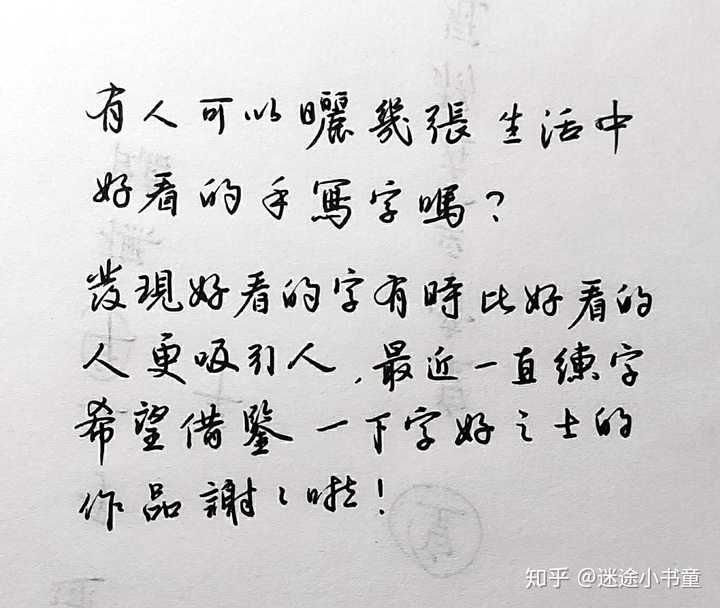 有人可以曬幾張生活中
好看的手寫字嗎？
發現好看的字有時比好看的
人更吸引人，最近一直練字
希望借鑒一下字好之士的
作品謝〻啦！
知乎 @迷途小书童